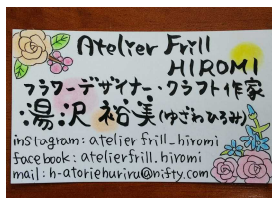 Atelier Frill
HIROMI
フラワーデザイナー・クラフト作家
湯沢 裕美(ゆざわひろみ)
instagram: atelier frill_hiromi
facebook: atelierfrill.hiromi
mail: h-atoriehuriru@nifty.com